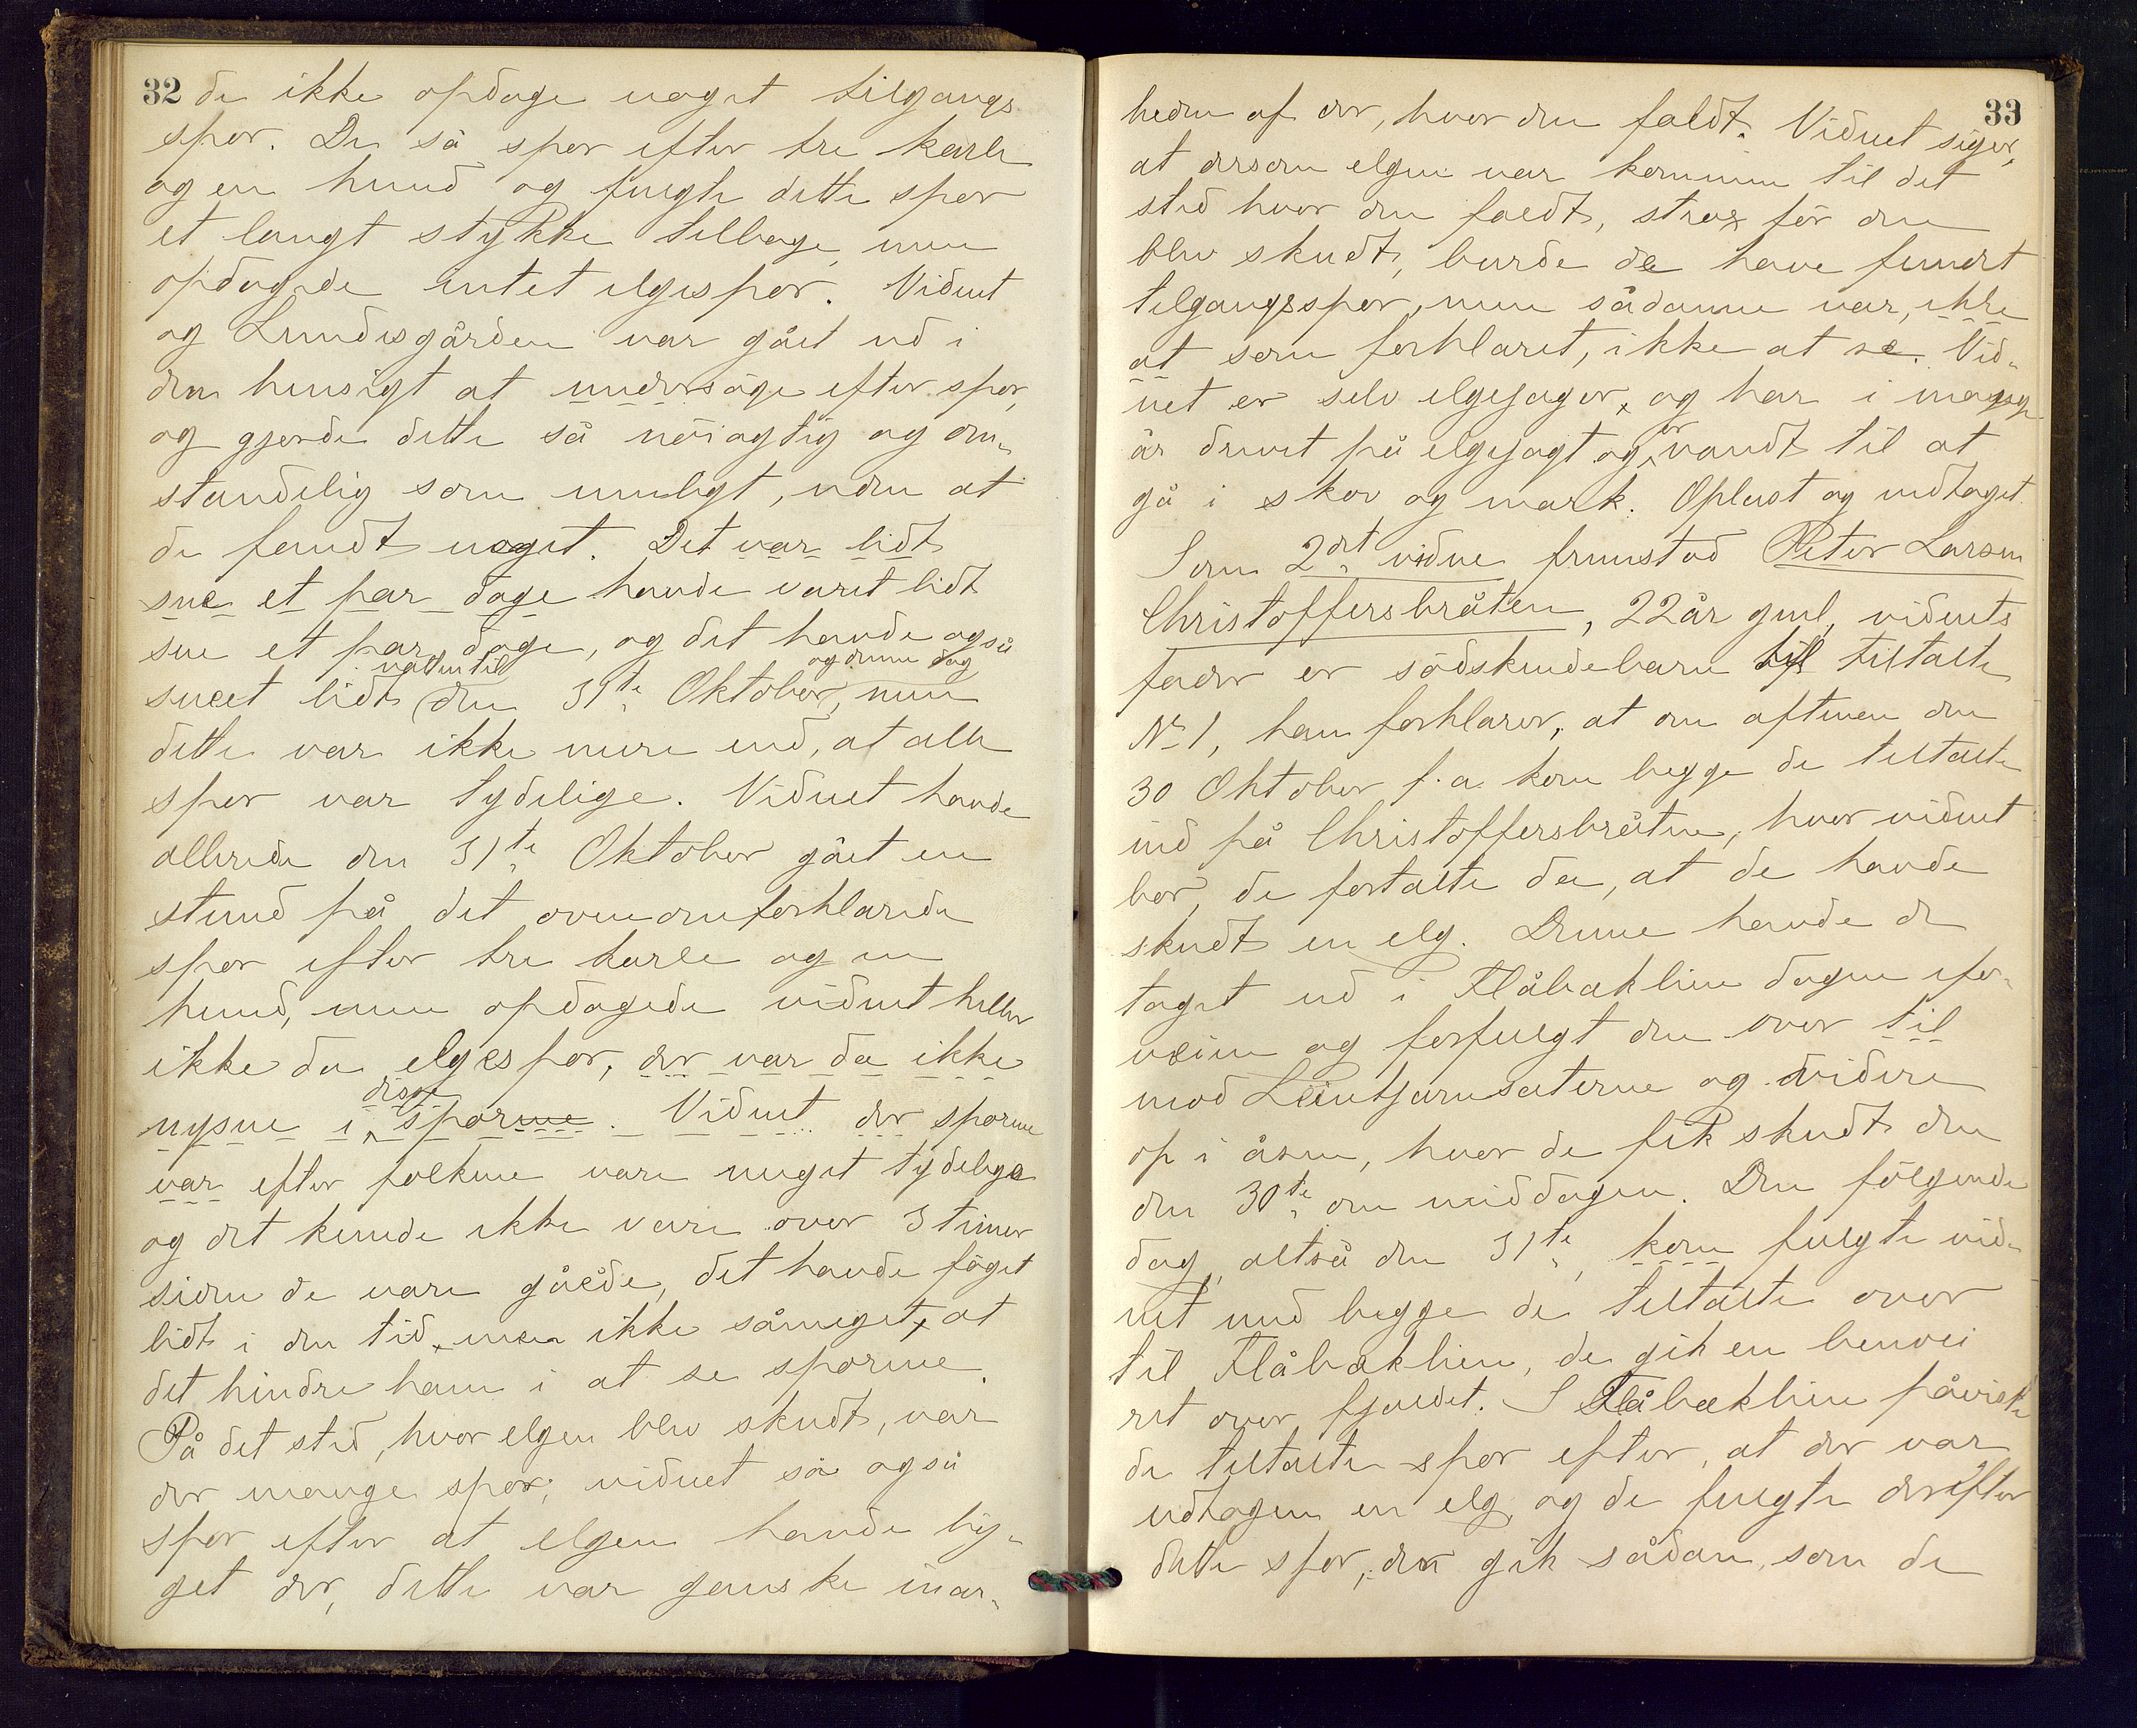 32 de ikke opdage noget tilgangs
spor. De så spor efter tre karle
og en hund og fulgte dette spor
et langt stykke tilbage, men
opdagede intet elgespor. Vidnet
og Lundisgården var gået ud i
den hensigt at undersöge efter spor,
og gjorde dette så nöiagtig og om-
standelig som muligt, uden at
de fandt noget. Det var lidt
sne et par dage havde været lidt
sne et par dage, og det havde også
natten til og denne dag
sneet lidt den 31te Oktober, men
dette var ikke mere end, at alle
spor var tydelige. Vidnet havde
allerede den 31te Oktober gået en
stund på det ovenomforklarede
spor efter tre karle og en
hund, men opdagede vidnet heller
ikke da elgespor, der var da ikke
disse
nysne i sporene. Vidnet der sporene
var efter folkene vare meget tydelige
og det kunde ikke være over 3 timer
siden de vare gåede, det havde föget
lidt i den tid, men ikke såmeget, at
det hindre ham i at se sporene.
På det sted, hvor elgen blev skudt, var
der mange spor; vidnet så også
spor efter at elgen havde lig-
get der, dette var ganske i nær-
33
heden af der, hvor den faldt. Vidnet siger,
at dersom elgen var kommen til det
sted hvor den faldt, strax för den
blev skudt, burde de have fundet
tilgangsspor, men sådanne var, ikke
at som forklaret, ikke at se. Vid-
net er selv elgejæger, og har i mange
er
år drevet på elgejagt og vandt til at
gå i skov og mark. Oplæst og vedtaget.
Som 2det vidne fremstod Peter Larsen
Christoffersbråten, 22 år gml, vidnets
fader er södskendebarn til tiltalte
No 1, han forklarer, at om aftenen den
30 Oktober f.a. kom begge de tiltalte
ind på Christoffersbråten, hvor vidnet
bor, de fortalte da, at de havde
skudt en elg. Denne havde de
taget ud i Flåbæklien dagen ifor-
veien og forfulgt den over til
mod Leintjernsæterne og videre
op i åsen, hvor de fik skudt den
den 30te om middagen. Den fölgende
dag, altså den 31te, kom fulgte vid-
net med begge de tiltalte over
til Flåbæklien, de gik en benvei
ret over fjeldet. I Flåbæklien påviste
de tiltalte spor efter, at der var
udtagen en elg, og de fulgte derefter
dette spor, der gik sådan, som de